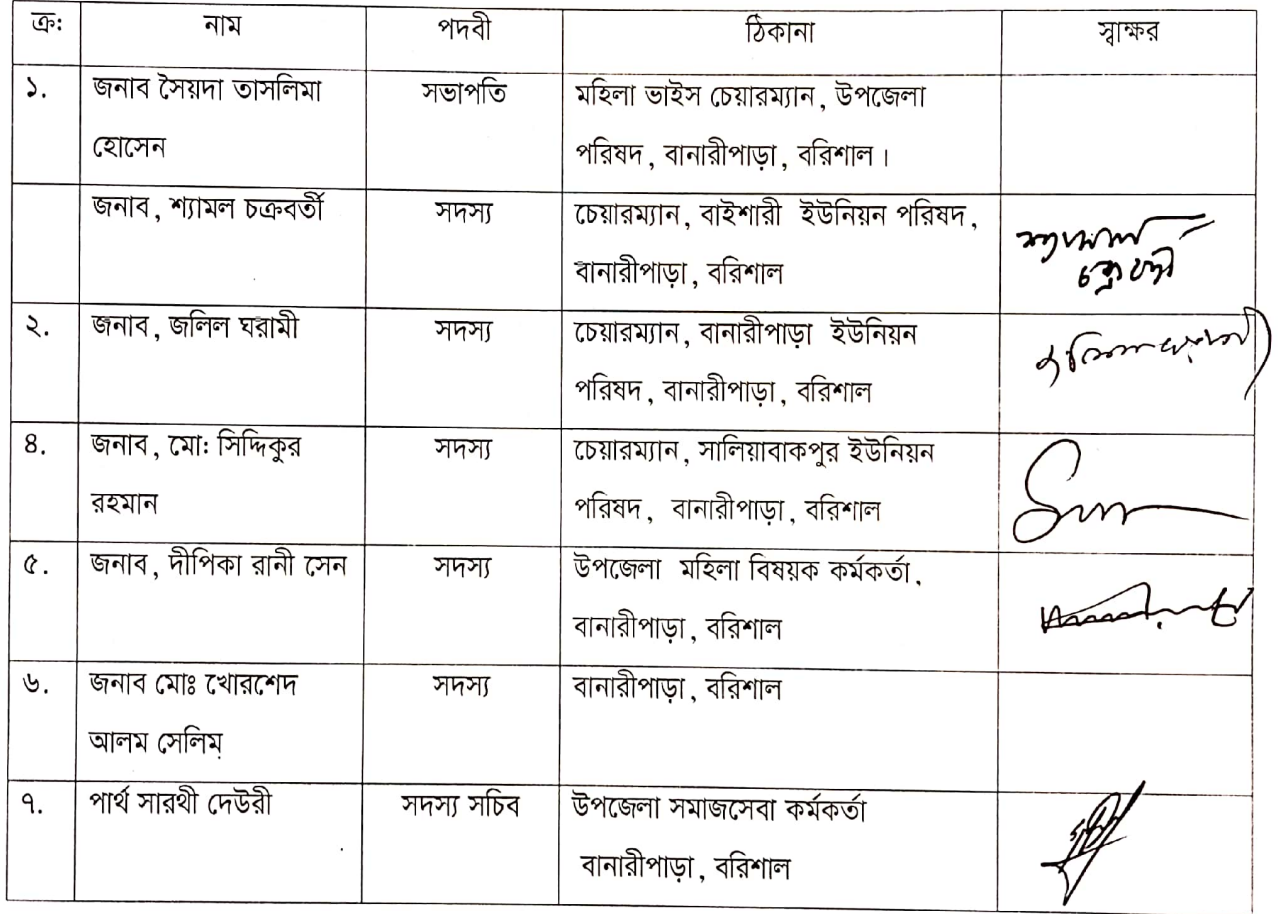 ক্র: নাম পদবী ঠিকানা স্বাক্ষর
১. জনাব সৈয়দা তাসলিমা সভাপতি মহিলা ভাইস চেয়ারম্যান, উপজেলা
হোসেন পরিষদ, বানারীপাড়া, বরিশাল।
জনাব, শ্যামল চক্রবর্তী সদস্য চেয়ারম্যান, বাইশারী ইউনিয়ন পরিষদ,
বানারীপাড়া, বরিশাল
২. জনাব, জলিল ঘরামী সদস্য চেয়ারম্যান, বানারীপাড়া ইউনিয়ন
পরিষদ, বানারীপাড়া, বরিশাল
৪. জনাব, মো: সিদ্দিকুর সদস্য চেয়ারম্যান, সালিয়াবাকপুর ইউনিয়ন
রহমান পরিষদ, বানারীপাড়া, বরিশাল
৫. জনাব, দীপিকা রানী সেন সদস্য উপজেলা মহিলা বিষয়ক কর্মকর্তা,
বানারীপাড়া, বরিশাল
৬. জনাব মোঃ খোরশেদ সদস্য বানারীপাড়া, বরিশাল
আলম সেলিম
৭. পার্থ সারথী দেউরী সদস্য সচিব উপজেলা সমাজসেবা কর্মকর্তা
বানারীপাড়া, বরিশাল